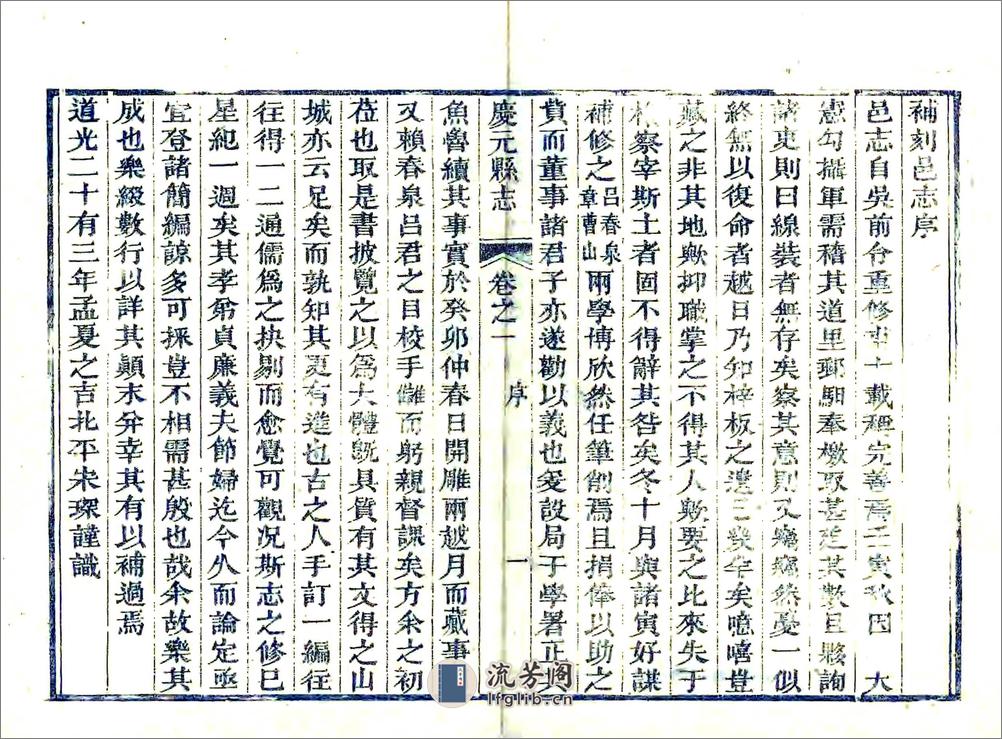 補刻邑志序
邑志自吳前令重修十載稱完善焉壬寅秋因　大
憲勾攝軍需稽其道里郵駰奉檄取甚迫其數且夥詢
諸吏則曰線裝者無存矣察其意則又癙癙然憂一似
終無以復命者越日乃知梓板之遺二幾年矣噫嘻豈
藏之非其地歟抑職掌之不得其人歟要之比來失于
檢察宰斯土者固不得辭其咎矣冬十月與諸寅好謀
補修之呂春泉章曹山兩學博欣然任筆削焉且捐俸以助之
費而董事諸君子亦遂勸以義也爰設局于學署正
慶元縣志　卷之一　序　一
魚魯續其事實於癸卯仲春日開雕兩越月而蕆事
又賴春泉呂君之目校手讎而躬親督課矣方余之初
莅也取是書披覽之以為大體旣具質有其文得之山
城亦云足矣而孰知其更有進也古之人手訂一編往
往得一二通儒爲之抉剔而愈覺可觀况斯志之修已
星紀一週矣其孝弟貞廉義夫節婦迄今久而論定亟
宜登諸簡編諒多可採豈不相需甚殷也哉余故樂其
成也樂綴數行以詳其顚末并幸其有以補過焉
道光二十有三年孟夏之吉北平宋琛謹識
流芳阁
lfglib.cn